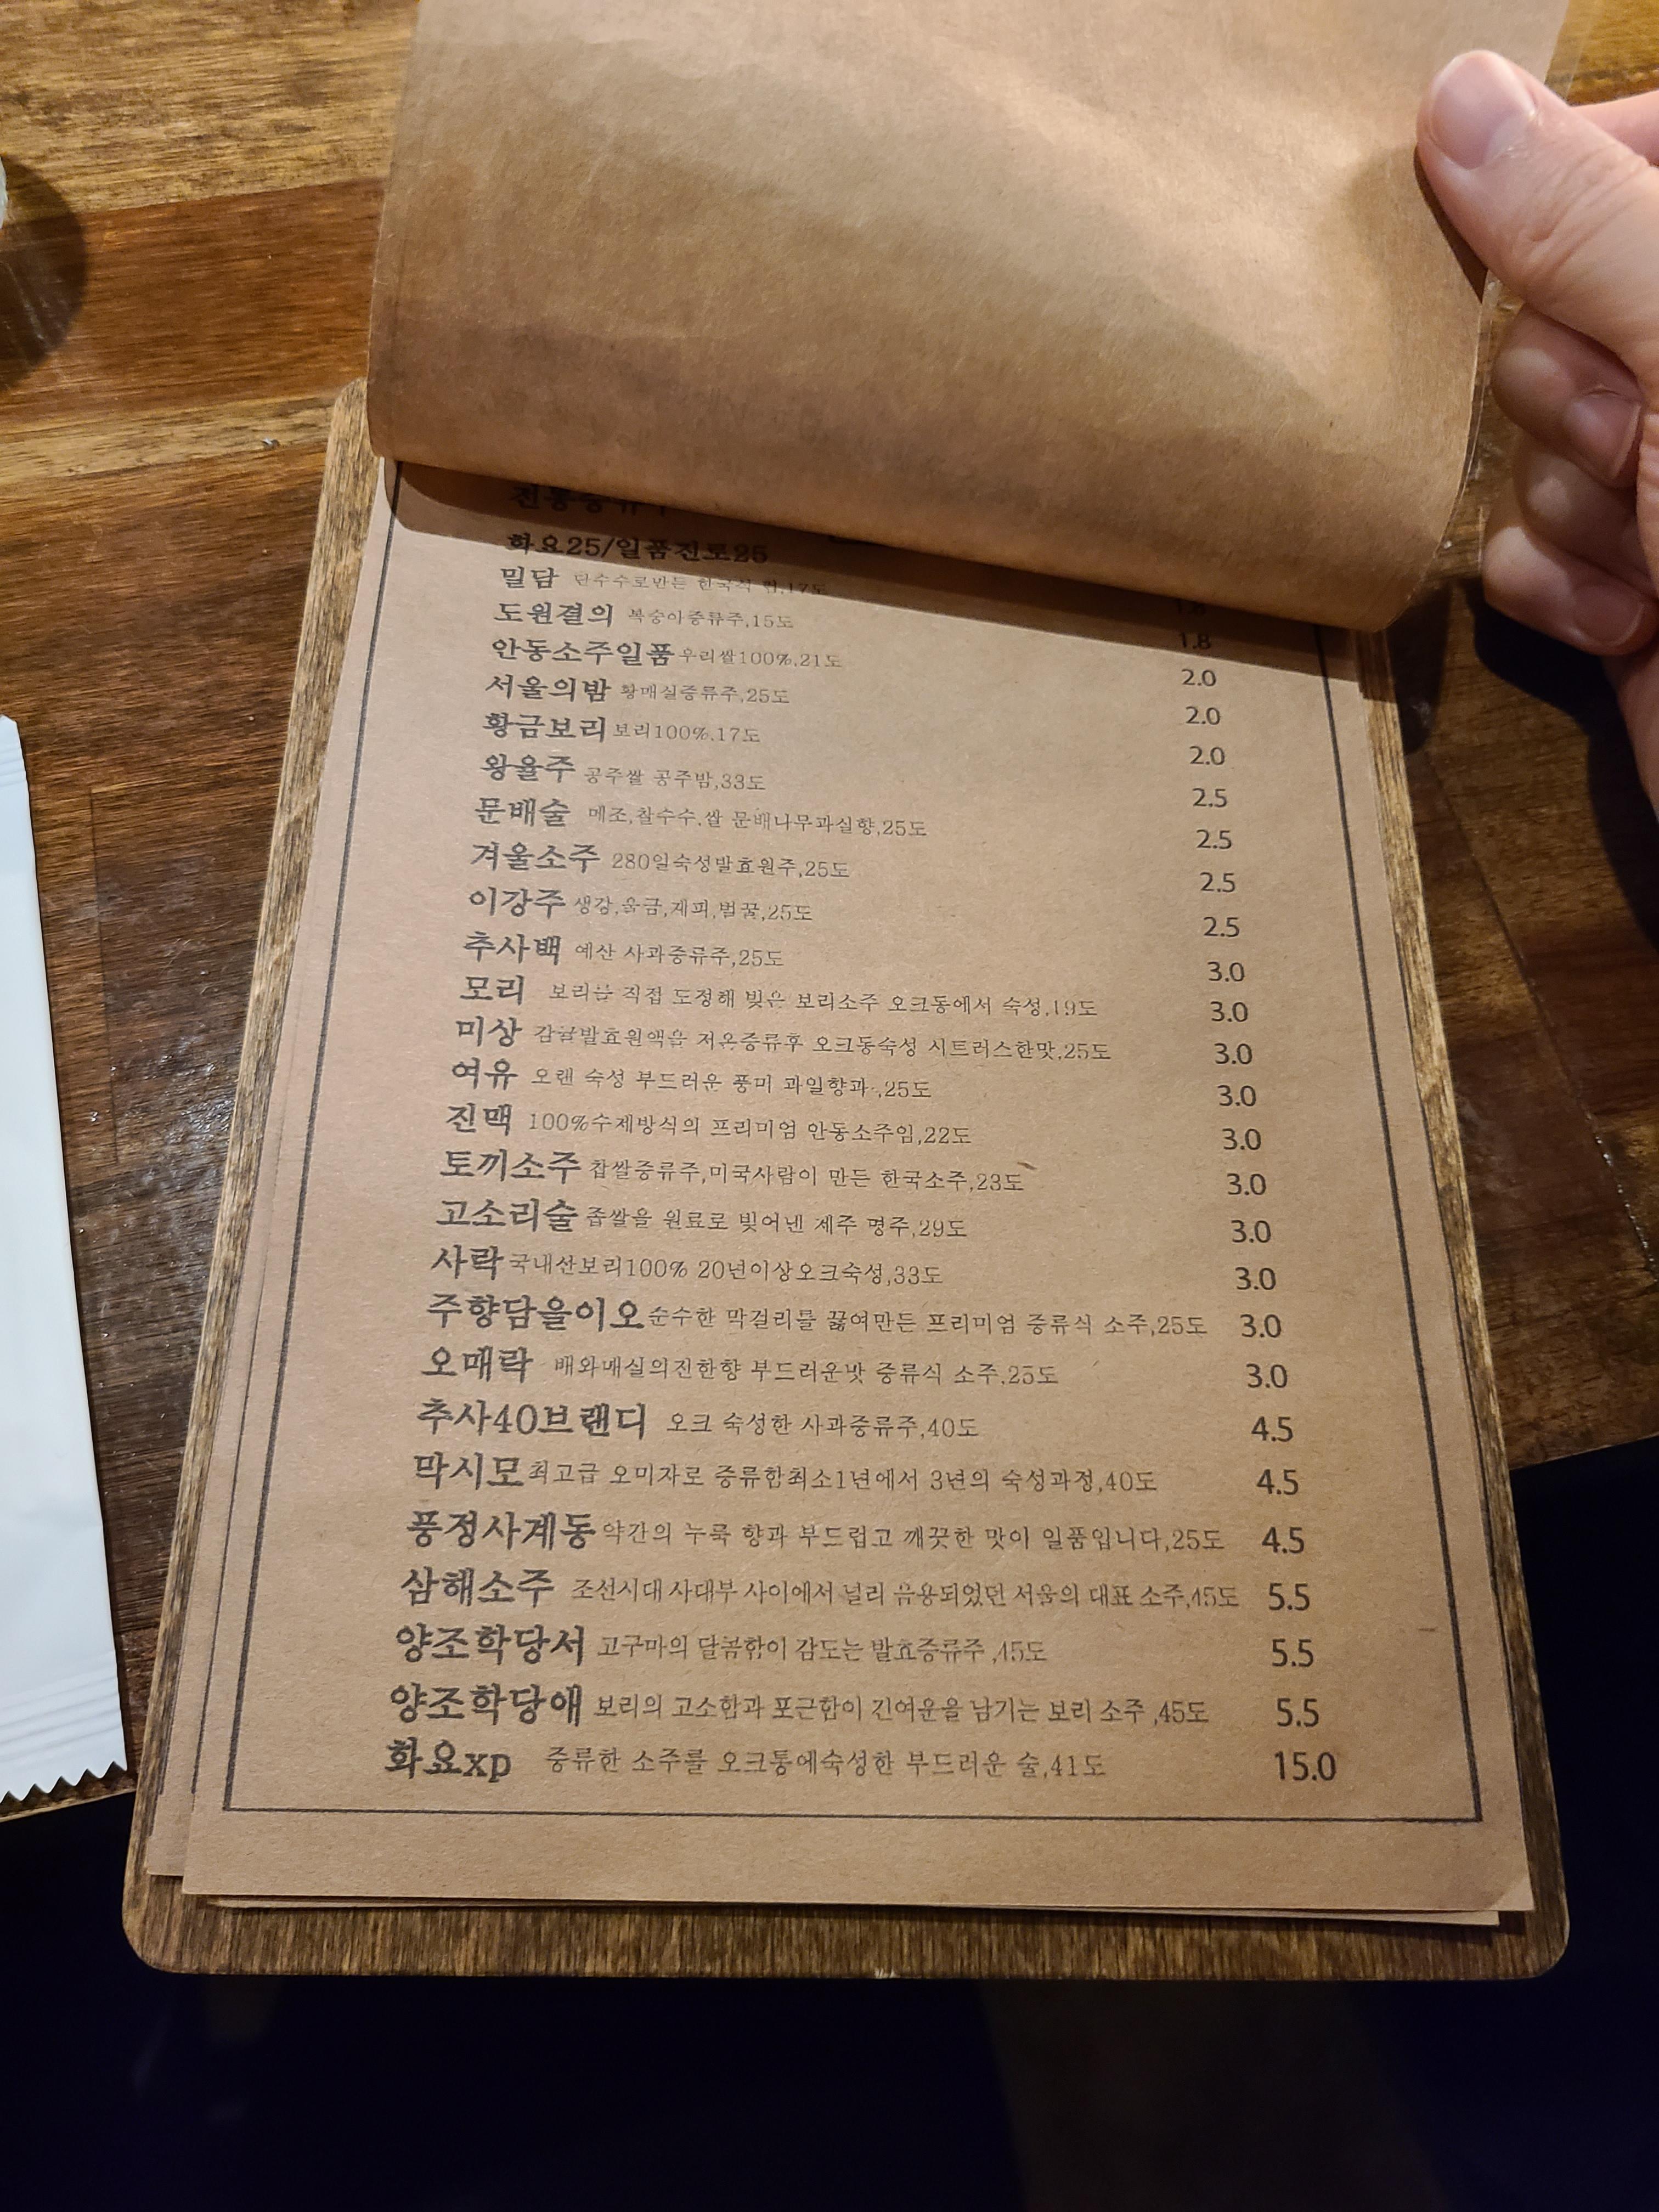 전통증류주
화요25/일품진로25
밀담 단수수로만든 한국식 럼,17도 1.8
도원결의 복숭아증류주,15도 1.8
안동소주일품 우리쌀100%,21도 2.0
서울의밤 황매실증류주,25도 2.0
황금보리 보리100%,17도 2.0
왕율주 공주쌀 공주밤,33도 2.5
문배술 메조,찰수수,쌀 문배나무과실향,25도 2.5
겨울소주 280일숙성발효원주,25도 2.5
이강주 생강,울금,계피,벌꿀,25도 2.5
추사백 예산 사과증류주,25도 3.0
모리 보리를 직접 도정해 빚은 보리소주 오크통에서 숙성,19도 3.0
미상 감귤발효원액을 저온증류후 오크통숙성 시트러스한맛,25도 3.0
여유 오랜 숙성 부드러운 풍미 과일향과,25도 3.0
진맥 100%수제방식의 프리미엄 안동소주임,22도 3.0
토끼소주 찹쌀증류주,미국사람이 만든 한국소주,23도 3.0
고소리술 좁쌀을 원료로 빚어낸 제주 명주,29도 3.0
사락 국내산보리100% 20년이상오크숙성,33도 3.0
주향담을이오 순수한 막걸리를 끓여만든 프리미엄 증류식 소주,25도 3.0
오매락 배와매실의진한향 부드러운맛 증류식 소주,25도 3.0
추사40브랜디 오크 숙성한 사과증류주,40도 4.5
막시모 최고급 오미자로 증류함최소1년에서 3년의 숙성과정,40도 4.5
풍정사계동 약간의 누룩 향과 부드럽고 깨끗한 맛이 일품입니다,25도 4.5
삼해소주 조선시대 사대부 사이에서 널리 음용되었던 서울의 대표 소주,45도 5.5
양조학당서 고구마의 달콤함이 감도는 발효증류주 ,45도 5.5
양조학당애 보리의 고소함과 포근함이 긴여운을 남기는 보리 소주 ,45도 5.5
화요xp 증류한 소주를 오크통에숙성한 부드러운 술,41도 15.0